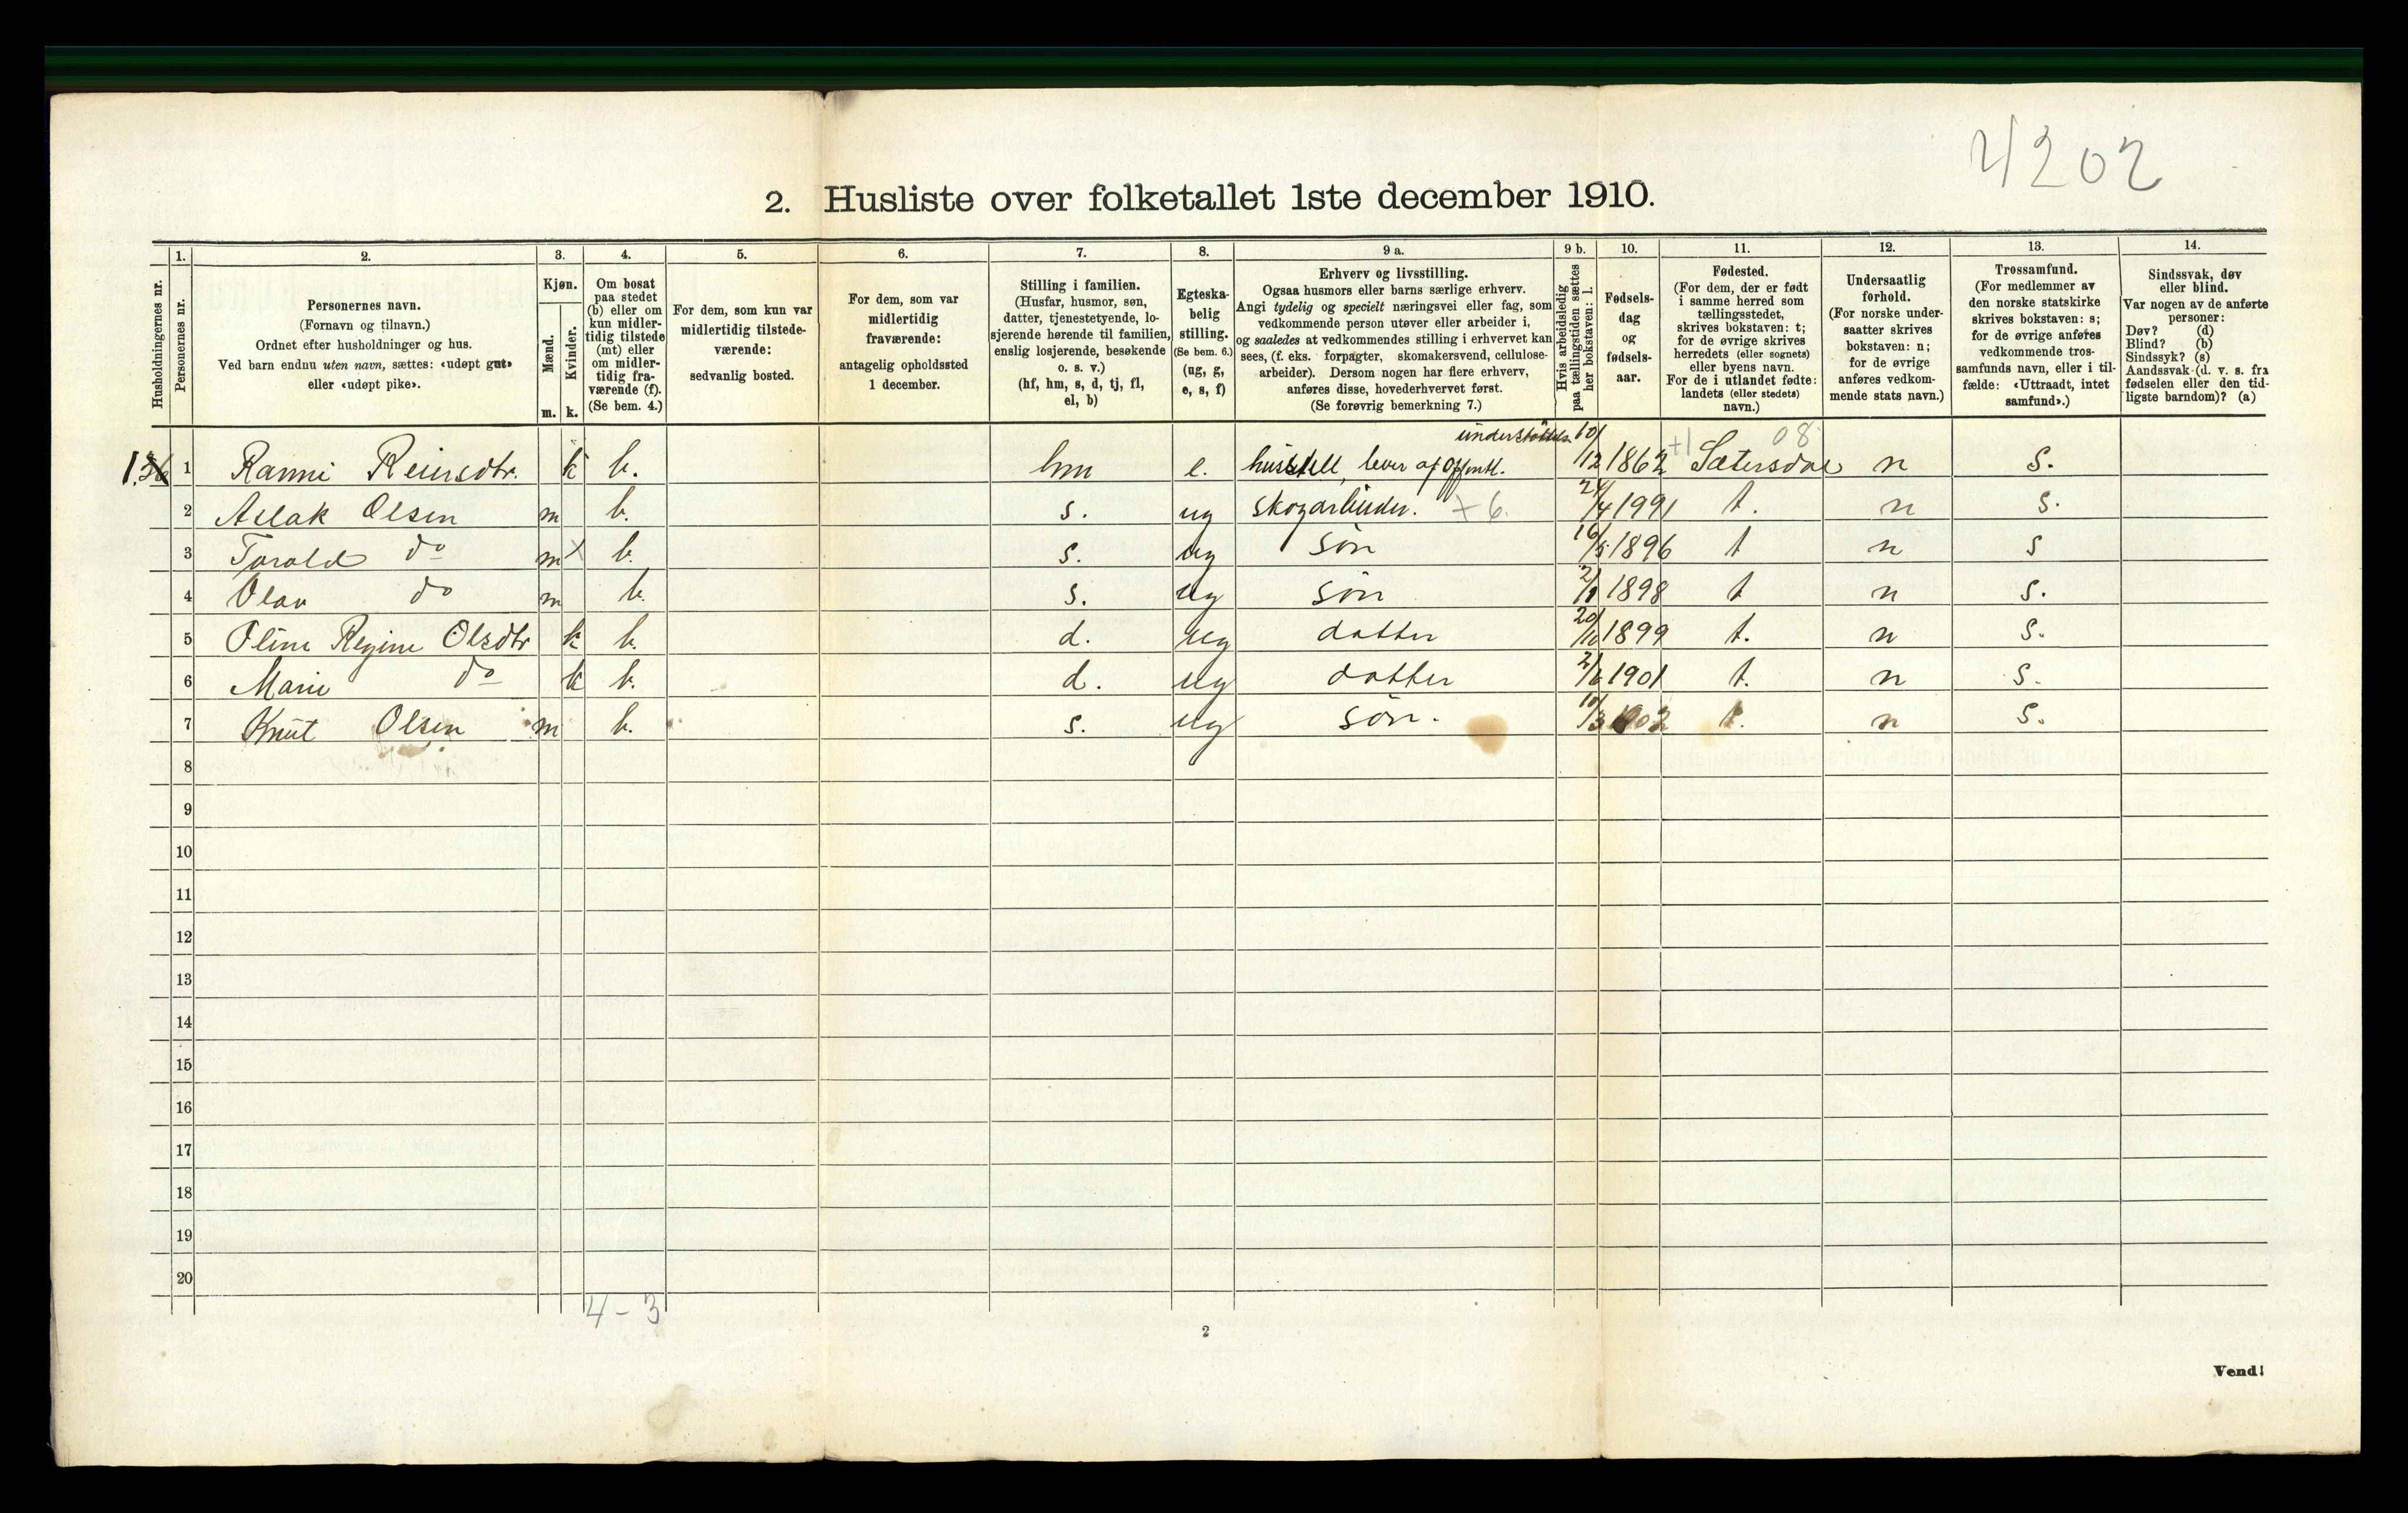 4202
2. Husliste over folketallet 1ste december 1910.
Husholdningernes nr.
1.
Personernes nr.
2.
Personernes navn.
(Fornavn og tilnavn.)
Ordnet efter husholdninger og hus.
Ved barn endnu uten navn, sættes: «udøpt gut»
eller «udøpt pike».
3.
Kjøn.
Mænd.
Kvinder.
m. k.
4.
Om bosat
paa stedet
(b) eller om
kun midler-
tidig tilstede
(mt) eller
om midler-
tidig fra-
værende (f).
(Se bem. 4.)
5.
For dem, som kun var
midlertidig tilstede-
værende:
sedvanlig bosted.
6.
For dem, som var
midlertidig
fraværende:
antagelig opholdssted
1 december.
7.
Stilling i familien.
(Husfar, husmor, søn,
datter, tjenestetyende, lo-
sjerende hørende til familien,
enslig losjerende, besøkende
o. s. v.)
(hf, hm, s, d, tj, fl,
el, b)
8.
Egteska-
belig
stilling.
(Se bem. 6.)
(ug, g,
e, s, f)
9 a.
Erhverv og livsstilling.
Ogsaa husmors eller barns særlige erhverv.
Angi tydelig og specielt næringsvei eller fag, som
vedkommende person utøver eller arbeider i,
og saaledes at vedkommendes stilling i erhvervet kan
sees, (f. eks. forpagter, skomakersvend, cellulose-
arbeider). Dersom nogen har flere erhverv,
anføres disse, hovederhvervet først.
(Se forøvrig bemerkning 7.)
9 b.
Hvis arbeidsledig
paa tællingstiden sættes
her bokstaven: l.
10.
Fødsels-
dag
og
fødsels-
aar.
11.
Fødested.
(For dem, der er født
i samme herred som
tællingsstedet,
skrives bokstaven: t;
for de øvrige skrives
herredets (eller sognets)
eller byens navn.
For de i utlandet fødte:
landets (eller stedets)
navn.)
12.
Undersaatlig
forhold.
(For norske under-
saatter skrives
bokstaven: n;
for de øvrige
anføres vedkom-
mende stats navn.)
13.
Trossamfund.
(For medlemmer av
den norske statskirke
skrives bokstaven: s;
for de øvrige anføres
vedkommende tros-
samfunds navn, eller i til-
fælde: «Uttraadt, intet
samfund».)
14.
Sindssvak, døv
eller blind.
Var nogen av de anførte
personer:
Døv? (d)
Blind? (b)
Sindssyk? (s)
Aandssvak (d. v. s. fra
fødselen eller den tid-
ligste barndom)? (a)
understøttels. +1 08
1 Ranni Reiersdtr. k b. hm e. husstell, lever af offentl. 10/12 1862 Sætersdal n s.
2 Aslak Olsen m b. s. ug skogarbeider. +6. 24/4 1991 t. n s.
3 Torald do m x b. s. ug søn 16/5 1896 t n s
4 Olav do m b. s. ug søn 2/1 1898 t n s.
5 Oline Regine Olsdtr k b. d. ug datter 20/10 1899 t. n s.
6 Marie do k b. d. ug datter 2/6 1901 t. n s.
7 Knut Olsen m b. s. ug søn. 10/3 1902 t. n s.
8
9
10
11
12
13
14
15
16
17
18
19
20
4-3
2
Vend!